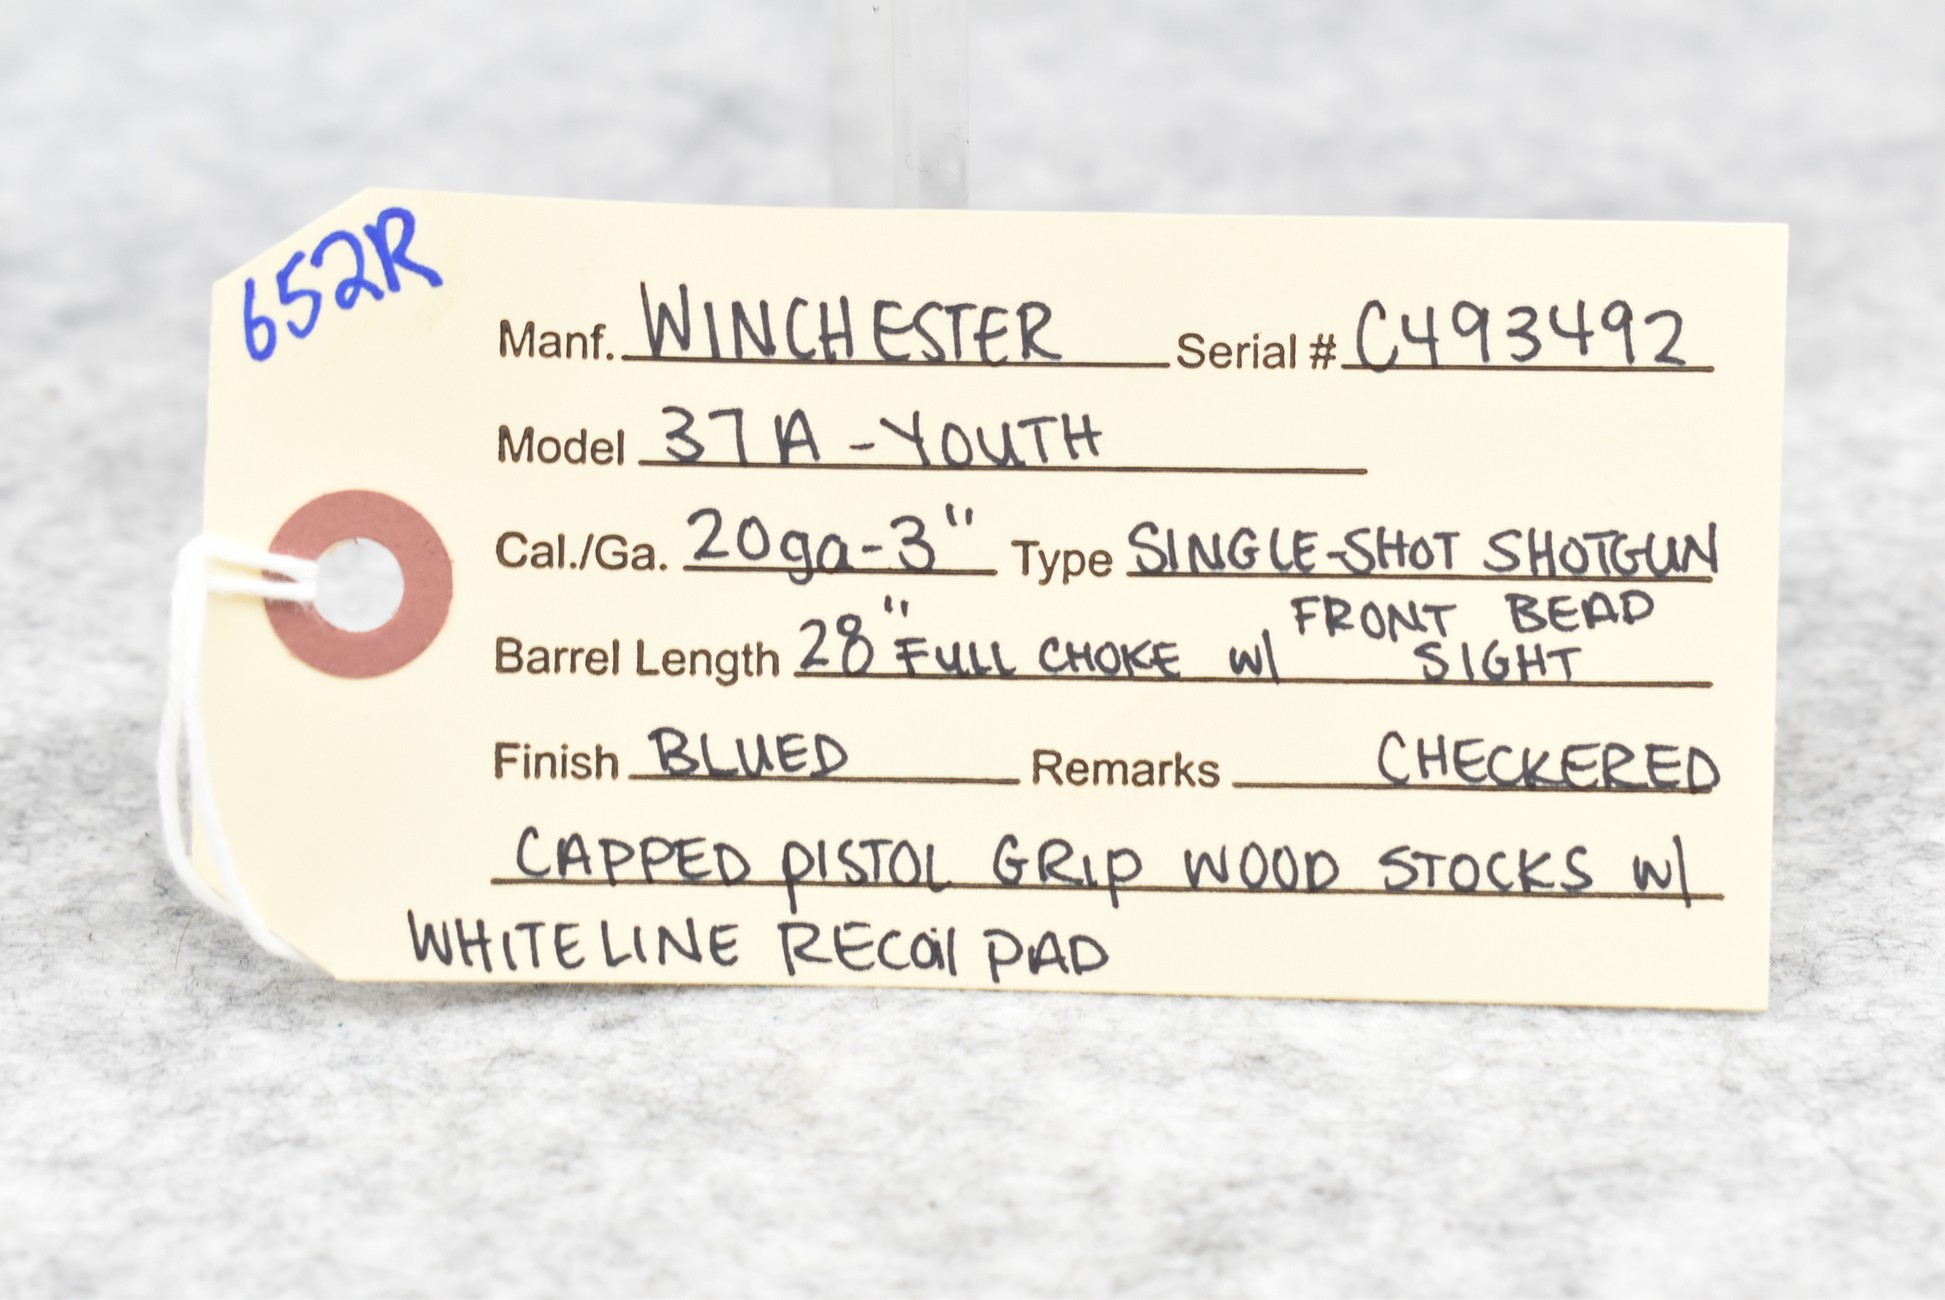 652R
Manf. WINCHESTER Serial # C493492
Model 37A - YOUTH
Cal./Ga. 20ga-3" Type SINGLE-SHOT SHOTGUN
Barrel Length 28" FULL CHOKE w/ FRONT BEAD SIGHT
Finish BLUED Remarks CHECKERED
CAPPED PISTOL GRIP WOOD STOCKS w/
WHITELINE RECOil PAD